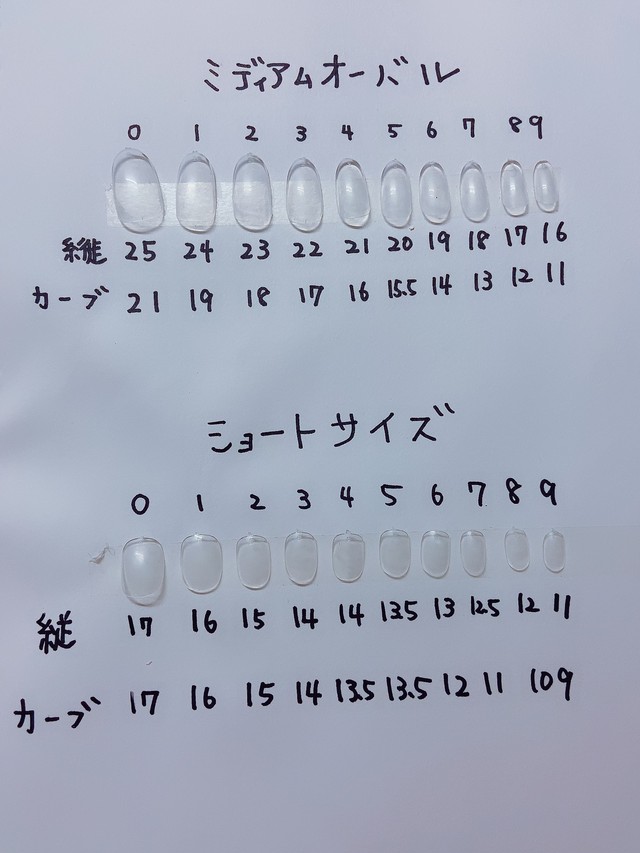 ミディアムオーバル
0 1 2 3 4 5 6 7 8 9
縦 25 24 23 22 21 20 19 18 17 16
カーブ 21 19 18 17 16 15.5 14 13 12 11
ショートサイズ
0 1 2 3 4 5 6 7 8 9
縦 17 16 15 14 14 13.5 13 12.5 12 11
カーブ 17 16 15 14 13.5 13.5 12 11 10 9